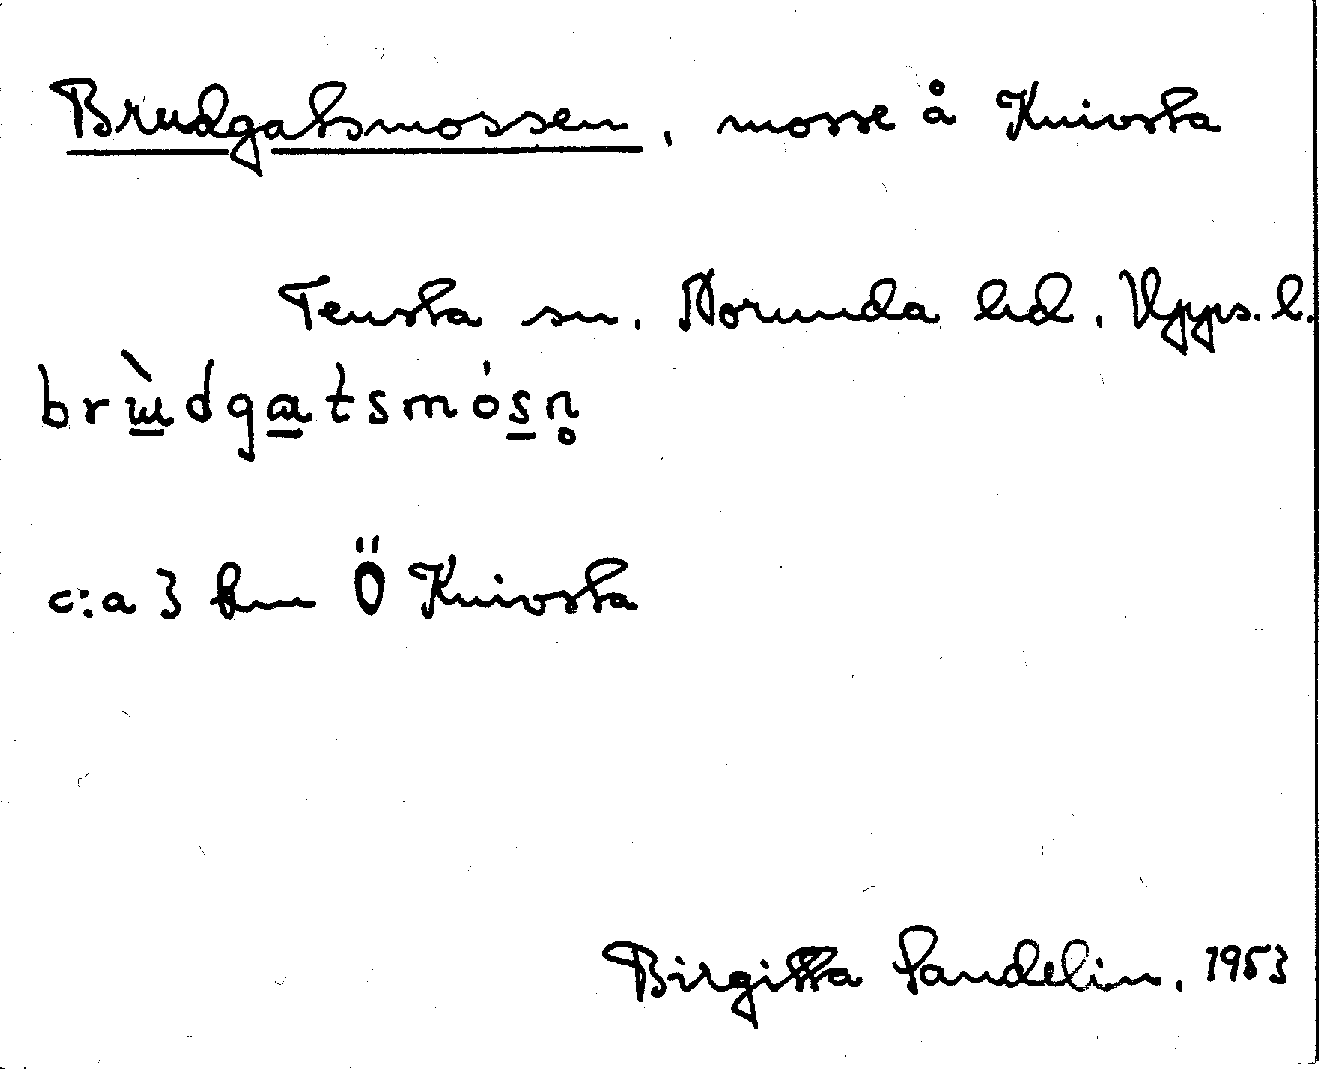 Brudgatsmossen, mosse å Knivsta
Tensta sn. Norunda hd. Upps. l.
brɯ̀dgatsmósn̥
c:a 3 km Ö Knivsta
Birgitta Sandelin, 1953